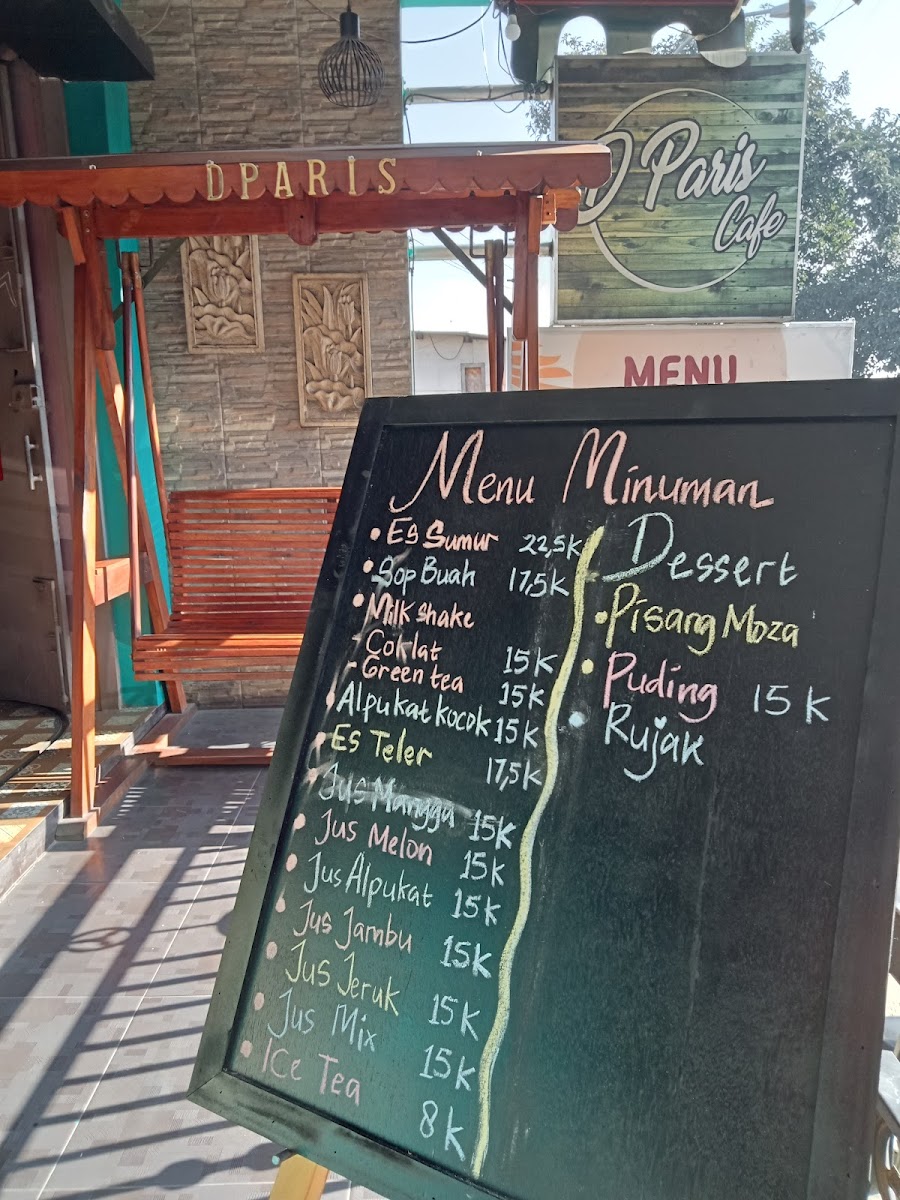 D PARIS
D Paris
Cafe
MENU
Menu Minuman
• Es Sumur 22,5K
• Sop Buah 17,5K
• Milk Shake
- Coklat 15K
- Green tea 15K
• Alpukat kocok 15K
• Es Teler 17,5K
• Jus Mangga 15K
• Jus Melon 15K
• Jus Alpukat 15K
• Jus Jambu 15K
• Jus Jeruk 15K
• Jus Mix 15K
• Ice Tea 8K
Dessert
• Pisang Moza
• Puding 15K
• Rujak